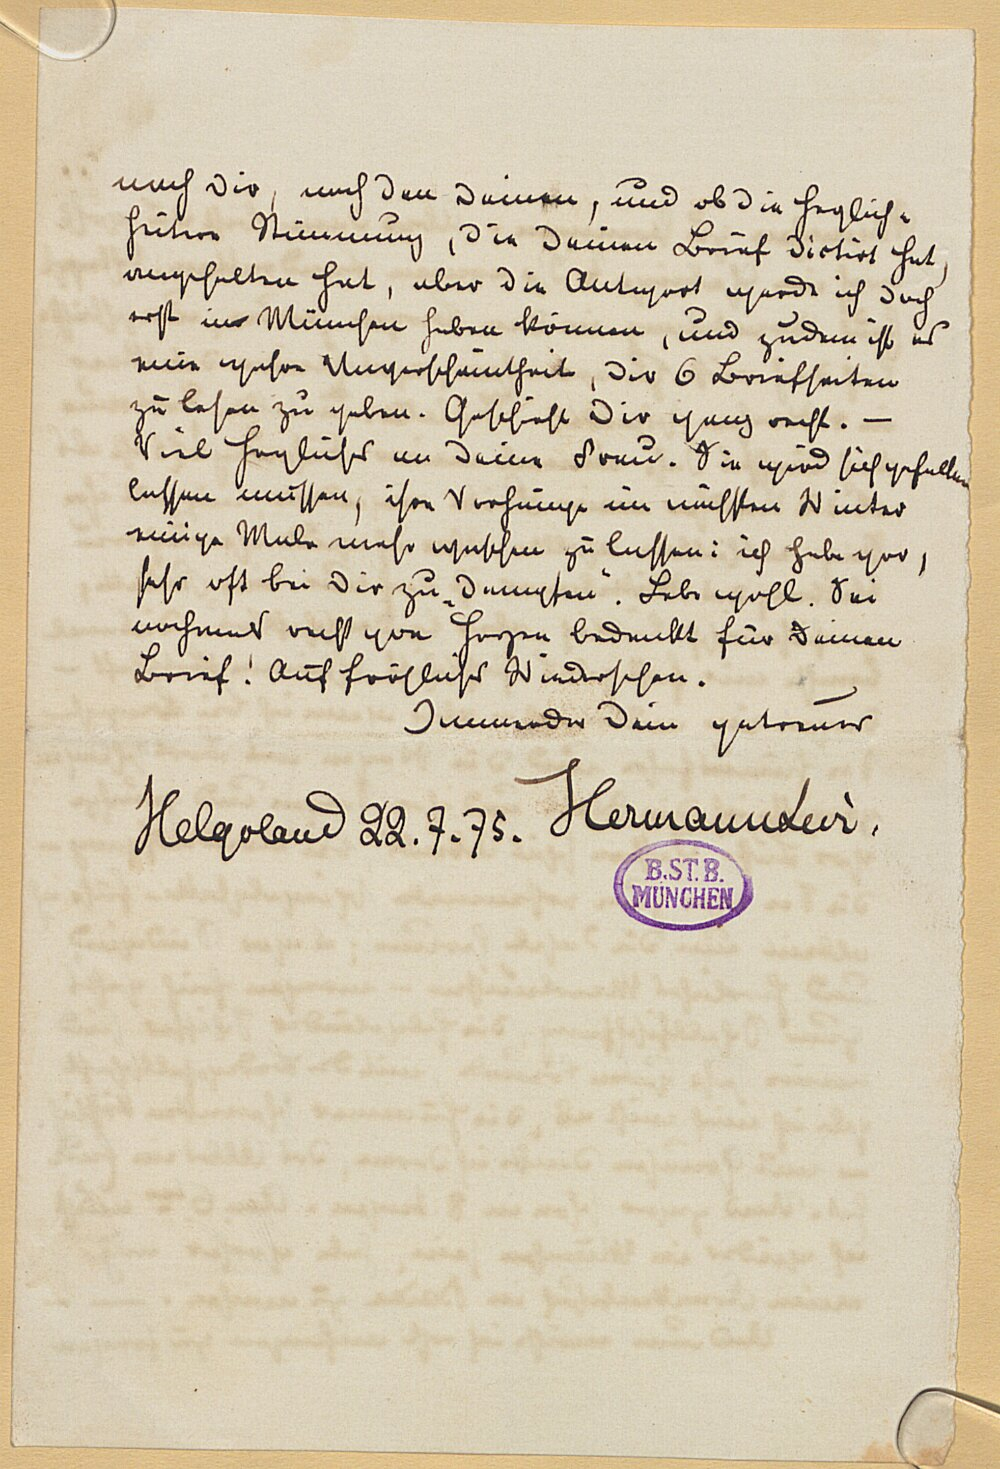 nach Dir, nach den Deinen, und ob die herzlich-
heitere Stimmung, die Deinen Brief dictirt hat,
angehalten hat, aber die Antwort werde ich doch
erst in München haben können, und zudem ist es
eine wahre Unverschämtheit, Dir 6 Briefseiten
zu lesen zu geben. Geschieht Dir ganz recht. —
Viel Herzliches an Deine Frau. Sie wird sich gefallen
lassen müssen, ihre Vorhänge im nächsten Winter
einige Male mehr waschen zu lassen: ich habe vor,
sehr oft bei Dir zu „dampfen“. Lebe wohl. Sei
nochmals recht von Herzen bedankt für Deinen
Brief! Auf fröhliches Wiedersehen.
Immerdar Dein getreuer
Helgoland 22.7.75. Hermann Levi.
B.ST.B.
MÜNCHEN